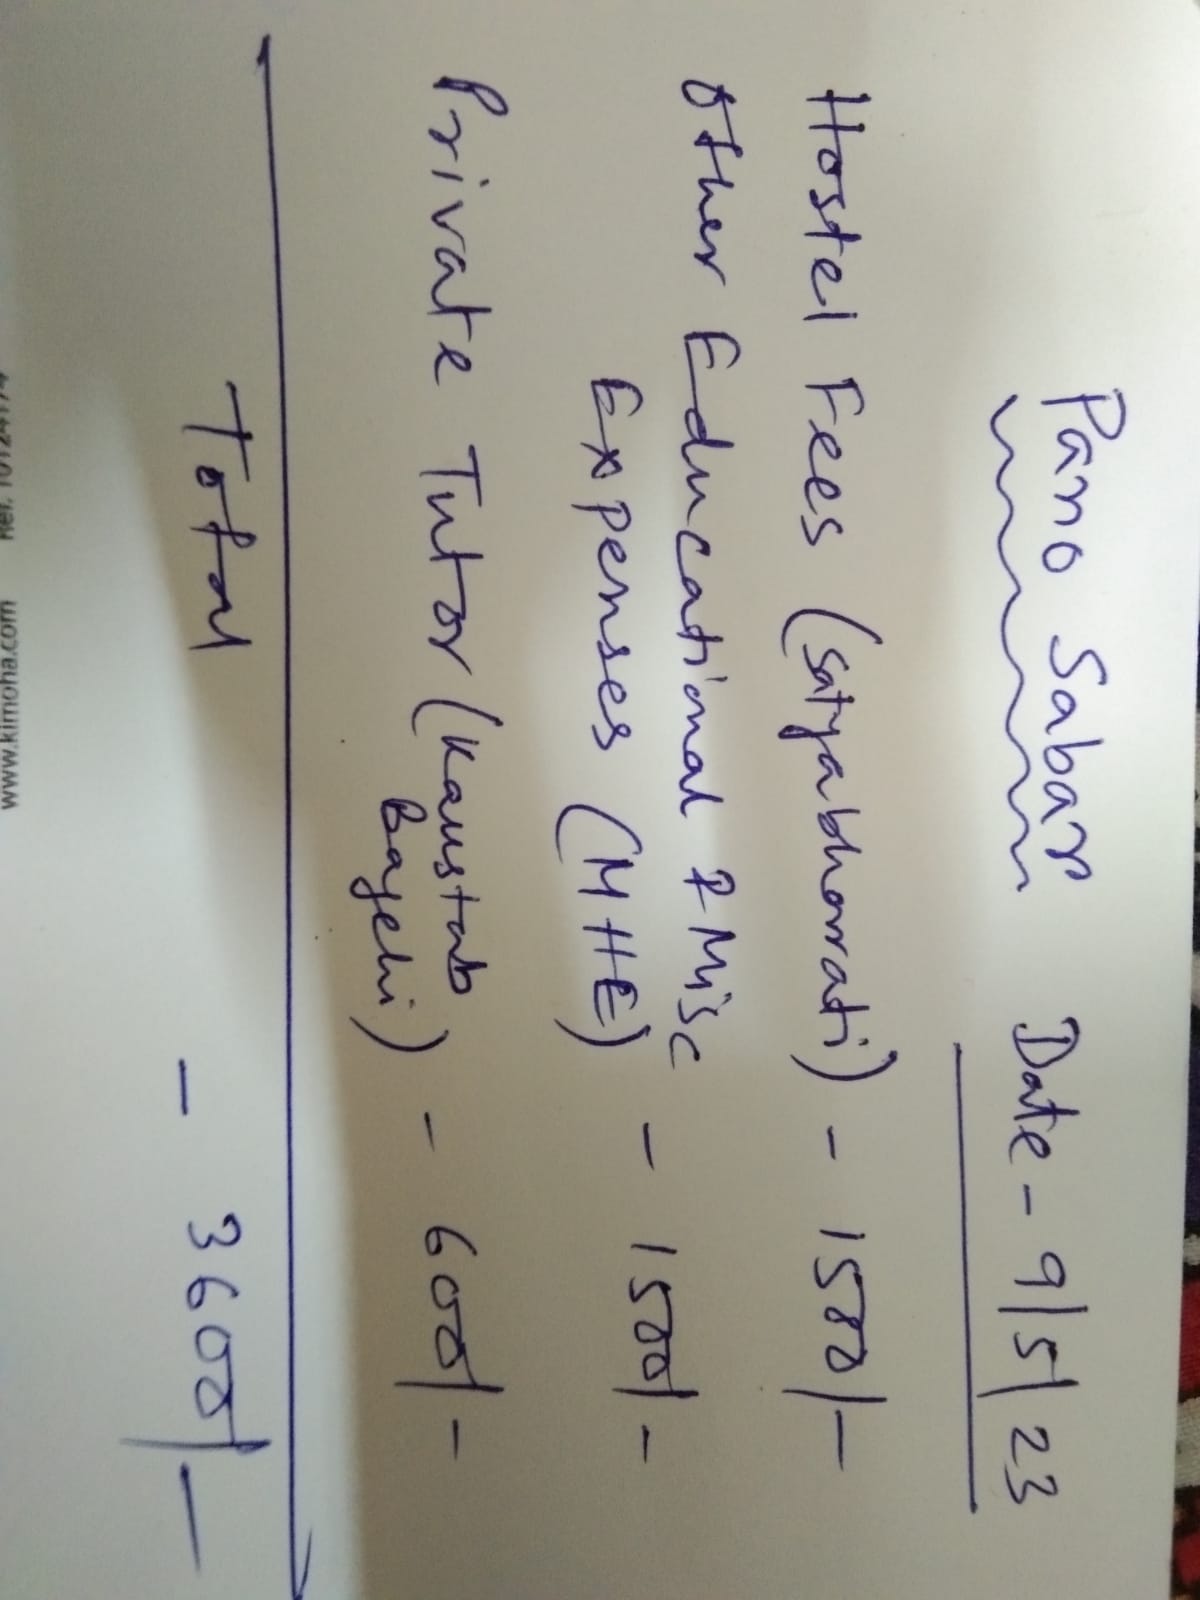 Pano Sabar Date - 9/5/23
Hostel Fees (Satyabharati) - 1500/-
Other Educational & Misc
Expenses (MHE) - 1500/-
Private Tutor (Kaustab
Bagchi) - 600/-
Total - 3600/-
www.kimoha.com